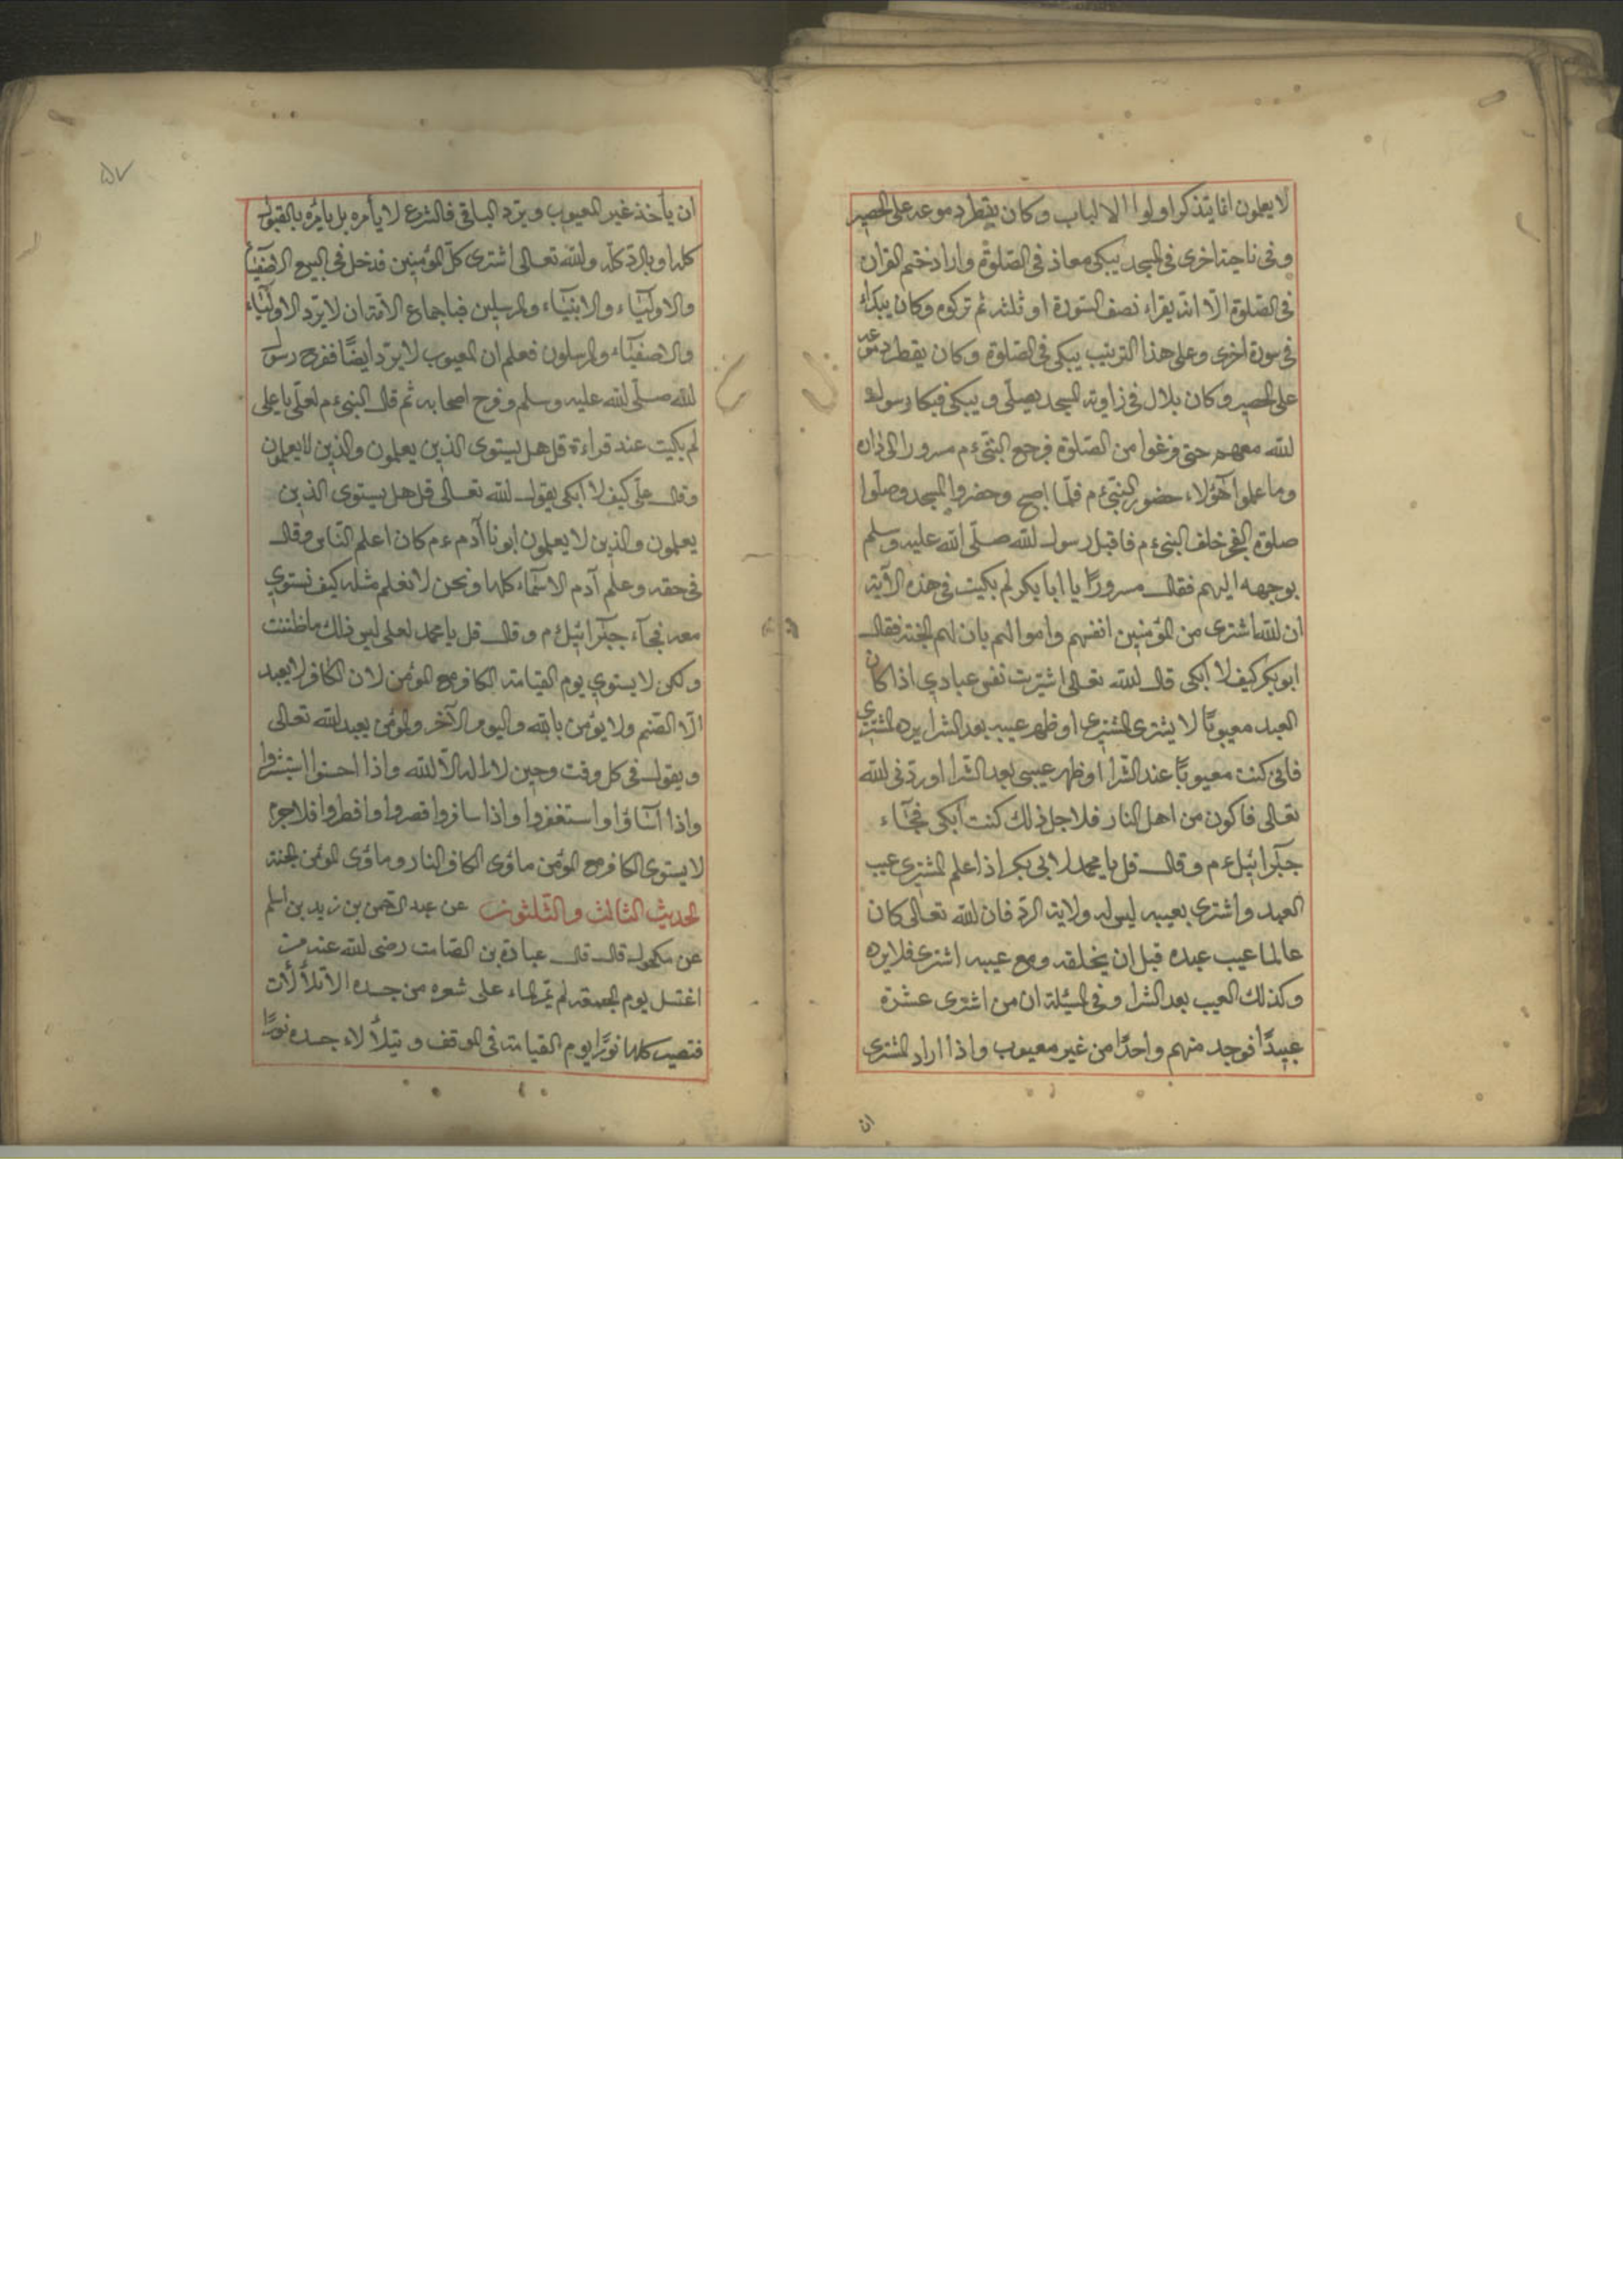 لا يعلمون انما يتذكر اولوا الالباب وكان يقطر دموعه على الحصير
وفى ناحية اخرى فى المسجد يبكى معاذ فى الصّلوة واراد ختم القران
فى الصّلوة الّا انّه يقراء نصف السّورة او ثلثه ثم تركوه وكان يبكراء
فى سورة اخرى وعلى هذا الترتيب يبكى فى الصّلوة وكان يقطر دموعه
على الحصير وكان بلال فى زاوية المسجد يصلّى ويبكى فبكا رسول
الله معهم حتى فرغوا من الصّلوة فرجع النبىّ ءم مسرورا الى داره
وما علموا هؤلاء حضور النبىّ ءم فلمّا اصبح وحضروا المسجد وصلّوا
صلوة الفجر خلف النبىّ ءم فاقبل رسول الله صلّى الله عليه وسلم
بوجهه اليهم فقال مسرورًا يا ابا بكر لم بكيت فى هذه الآية
ان الله اشترى من المؤمنين انفسهم واموالهم بان لهم الجنة فقال
ابو بكر كيف لا ابكى قال الله تعالى اشتريت نفس عبادي اذا كان
العبد معيوبًا لا يشترى المشترى او ظهر عيبه بعد الشرا يرده المشتري
فانى كنت معيوبًا عند الشّرا او ظهر عيبى بعد الشّرا اوردّنى الله
تعالى فاكون من اهل النار فلاجل ذلك كنت ابكى فجآء
جبرائيل ءم وقال قل يا محمد لابى بكر اذا علم المشترى عيب
العبد واشترى بعيبه ليس له ولاية الردّ فان الله تعالى كان
عالما عيب عبده قبل ان يخلقه ومع عيبه اشترى فلا يرده
وكذلك العيب بعد الشرا وفى المسئلة ان من اشترى عشرة
عبيدًا فوجد منهم واحدًا من غير معيوب واذا اراد المشترى
ان
۵۷
ان يأخذ غير المعيوب ويردّ الباقى فالشرع لا يأمره بل يأمره بالقبول
كله او بالردّ كله والله تعالى اشترى كلّ المؤمنين فدخل فى البيع الاصفيآء
والاوليآء والانبيآء والمرسلين فباجماع الامّة ان لا يردّ الاوليآء
والاصفيآء والمرسلون فعلم ان المعيوب لا يردّ ايضًا ففرح رسول
الله صلّى الله عليه وسلم وفرح اصحابه ثم قال النبىّ ءم لعلىّ يا على
لم بكيت عند قراءة قل هل يستوى الذين يعلمون والذين لا يعلمون
وقال علىّ كيف لا ابكى يقول الله تعالى قل هل يستوى الذين
يعلمون والذين لا يعلمون ابونا آدم ءم كان اعلم النّاس وقال
فى حقه وعلم آدم الاسمآء كلها ونحن لا نعلم مثله كيف نستوي
معه فجآء جبرائيل ءم وقال قل يا محمد لعلى ليس ذلك ما ظننت
ولكن لا يستوي يوم القيامة الكافر مع المؤمن لان الكافر لا يعبد
الّا الصّنم ولا يؤمن بالله واليوم الآخر والمؤمن يعبد الله تعالى
ويقول فى كل وقت وحين لا اله الّا الله واذا احسنوا استبشروا
واذا اسآؤا واستغفروا واذا سافروا قصروا وافطروا فلاجرم
لا يستوى الكافر مع المؤمن مأوى الكافر النار ومأوى المؤمن الجنة
الحديث الثالث والثلثون عن عبد الرّحمن بن زيد بن اسلم
عن مكحول قال قال عبادة بن الصّامت رضى الله عنه من
اغتسل يوم الجمعة لم يمرّ الماء على شعره من جسده الّا تلألأت
فتصير كلها نورًا يوم القيامة فى الموقف ويتلألاء جسده نورًا